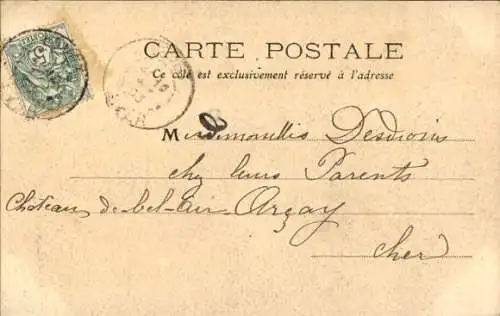 CARTE POSTALE
Ce côté est exclusivement réservé à l'adresse
Mesdemoiselles Desdions
chez leurs Parents
Château de-bel-air Arçay
Cher